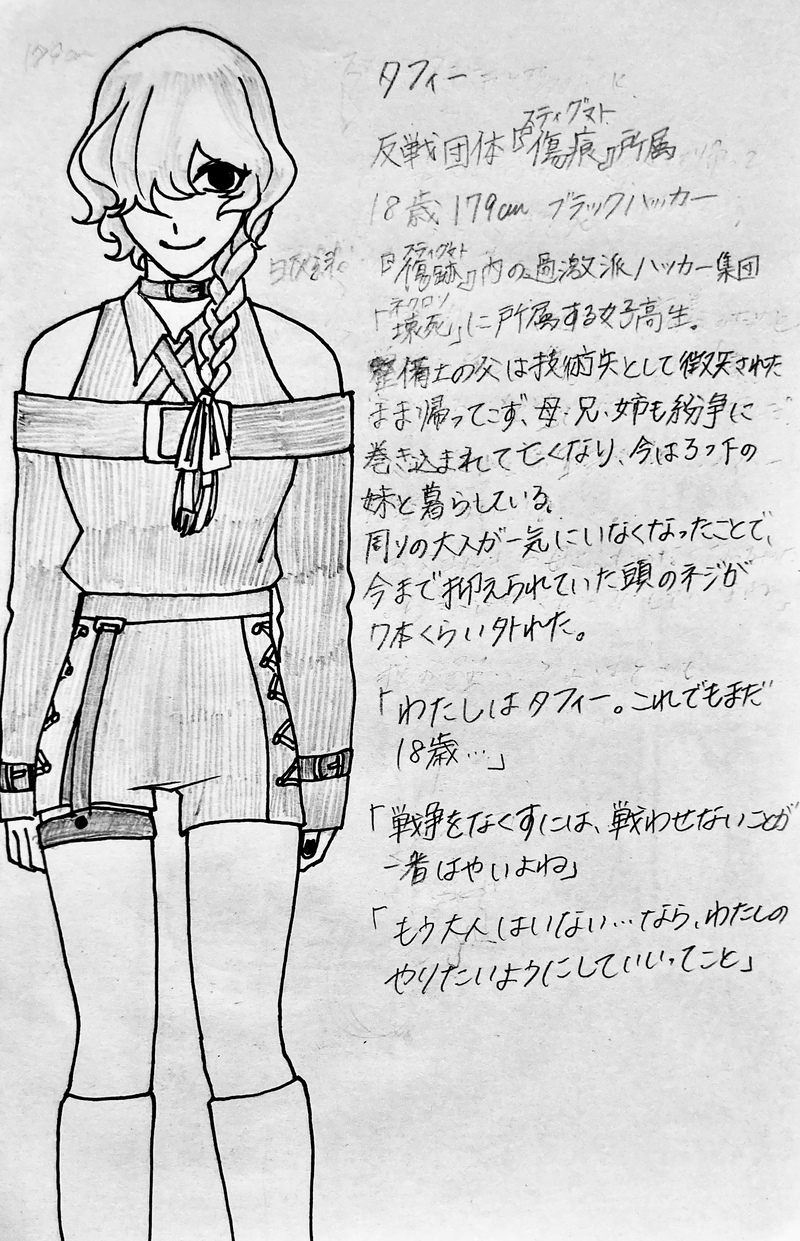 タフィー
スティグマト
反戦団体『傷痕』所属
18歳 179cm ブラックハッカー
スティグマト
『傷跡』内の過激派ハッカー集団
ネクロシ
「壊死」に所属する女子高生。
整備士の父は技術兵として徴兵された
まま帰ってこず、母・兄・姉も紛争に
巻き込まれて亡くなり、今は3つ下の
妹と暮らしている。
周りの大人が一気にいなくなったことで、
今まで抑えられていた頭のネジが
7本くらい外れた。
「わたしはタフィー。これでもまだ
18歳…」
「戦争をなくすには、戦わせないことが
一番はやいよね」
「もう大人はいない…なら、わたしの
やりたいようにしていいってこと」